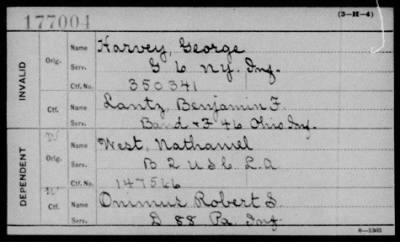 177004
(3-H-4)
INVALID
Orig.
Name Harvey, George
Serv. G 6 N.Y. Inf.
Ctf. No. 350341
Ctf.
Name Lantz, Benjamin F.
Serv. Band & F 46 Ohio Inf.
DEPENDENT
W
Orig.
Name West, Nathaniel
Serv. B 2 U S C L. A
Ctf. No. 147566
W
Ctf.
Name Onimus Robert S.
Serv. D 88 Pa Inf